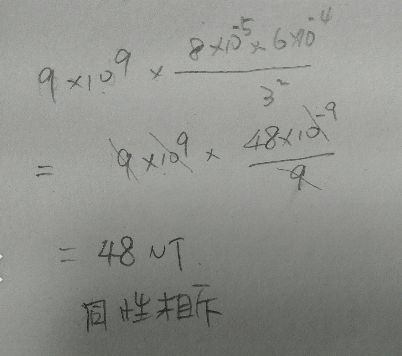 9×10⁹ × (8×10⁻⁵×6×10⁻⁴)/3²
= 9×10⁹ × (48×10⁻⁹)/9
= 48 NT
同性相斥